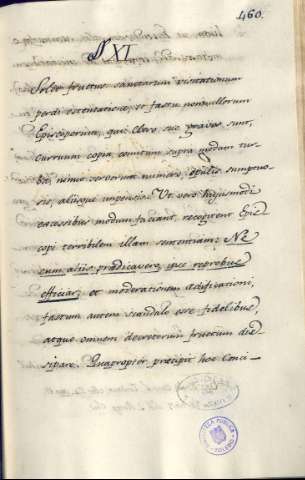 460.
§ XI
Solet fructus sanctarum visitationum
perdi ostentatione, et fastu nonnullorum
Episcoporum, qui Clero suo graves sunt,
Curruum copia, comitum supra modum tur-
ba, nimio servorum numero, epulis sumptuo-
sis, aliisque impensis. Ut vero hujusmodi
excessibus modum faciant, recogitent Epis-
copi terribilem illam sententiam: Ne
cum aliis prædicavero, ipse reprobus
efficiar; et moderationem ædificationi,
fastum autem scandalo esse fidelibus,
atque omnem decretorum fructum dis-
sipare. Quapropter præcipit hoc Conci-
BIBLIOTECA PUBLICA
TOLEDO